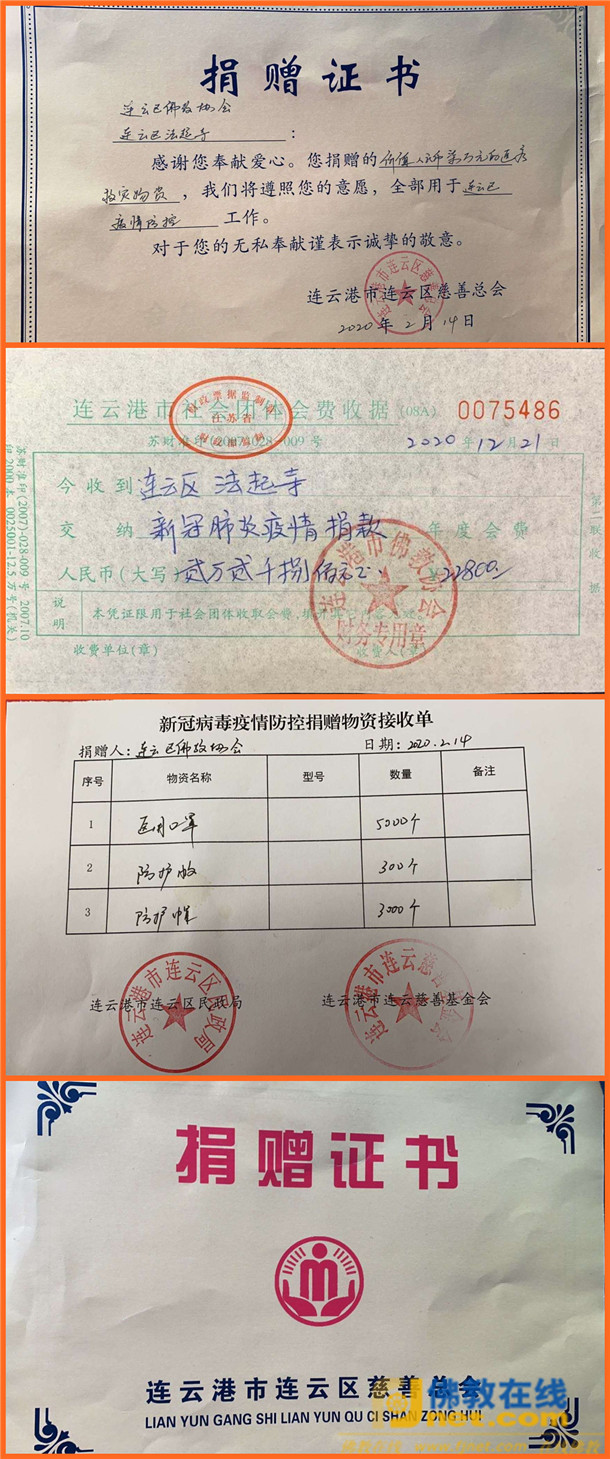 捐赠证书
连云区佛教协会
连云区法起寺:
感谢您奉献爱心。您捐赠的价值人民币 万元的医疗
救灾物资,我们将遵照您的意愿,全部用于连云区
疫情防控 工作。
对于您的无私奉献谨表示诚挚的敬意。
连云港市连云区慈善总会
2020年2月14日
连云港市社会团体会费收据(08A) 0075486
苏财准印(2007)-028-009号 2020年12月21日
今收到连云区法起寺
交纳新冠肺炎疫情捐款年度会费
人民币(大写)贰万贰千捌佰元 ¥22800
说明 本凭证限用于社会团体收取会费,
收费单位(章) 收费人(章)
第二联收据
苏财准印(2007)-028-009号 2007.10
财政票据监制章
江苏省
连云港市佛教协会
财务专用章
新冠病毒疫情防控捐赠物资接收单
捐赠人:连云区佛教协会 日期:2020.2.14
序号 物资名称 型号 数量 备注
1 医用口罩 5000个
2 防护服 300个
3 防护帽 3000个
连云港市连云区民政局 连云港市连云慈善基金会
连云港市连云区民政局
连云港市连云慈善基金会
捐赠证书
连云港市连云区慈善总会
LIAN YUN GANG SHI LIAN YUN QU CI SHAN ZONG HUI
佛教在线